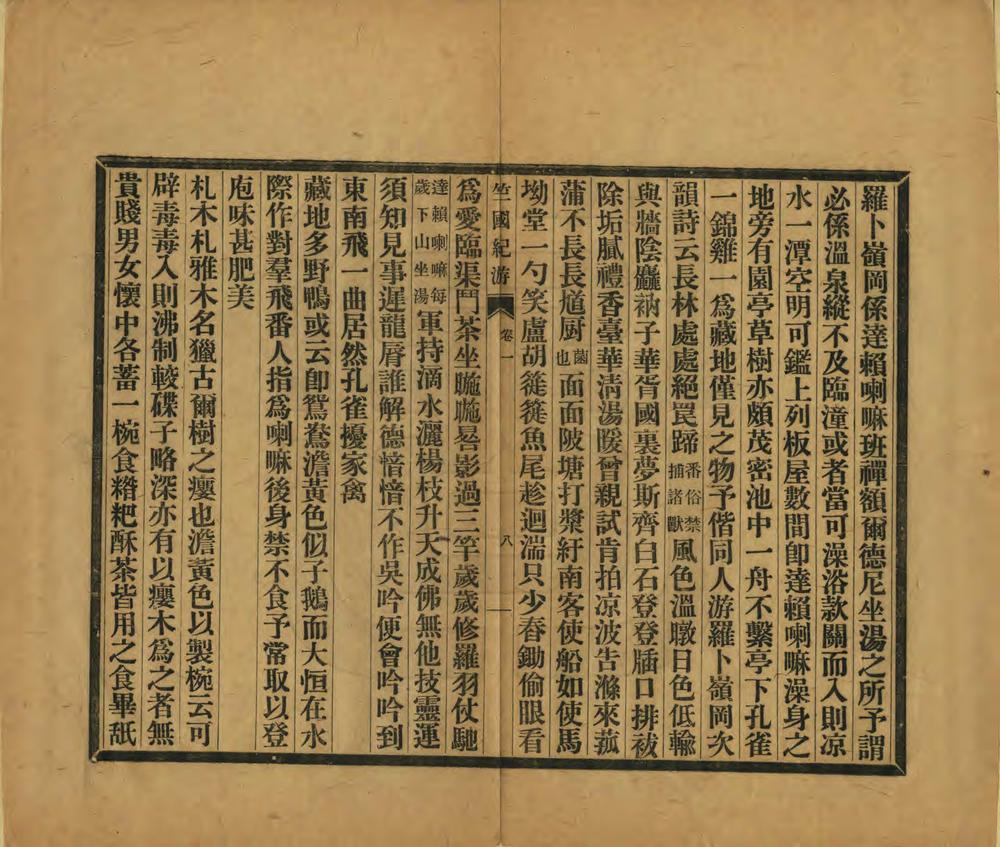 羅卜嶺岡係達賴喇嘛班禪額爾德尼坐湯之所予謂
必係溫泉縱不及臨潼或者當可澡浴款關而入則凉
水一潭空明可鑑上列板屋數間卽達賴喇嘛澡身之
地旁有園亭草樹亦頗茂密池中一舟不繫亭下孔雀
一錦雞一爲藏地僅見之物予偕同人游羅卜嶺岡次
韻詩云長林處處絕罠蹄番俗禁捕諸獸風色溫暾日色低輸
與牆陰廳衲子華胥國裏夢斯齊白石登登牐口排祓
除垢膩禮香臺華淸湯暖曾親試肯拍凉波告滌來菰
蒲不長長馗厨菌也面面陂塘打槳紆南客使船如使馬
坳堂一勺笑盧胡簁簁魚尾趁迴湍只少春鋤偷眼看
竺國紀游 卷一 八
爲愛臨渠鬥茶坐暆暆晷影過三竿歲歲修羅羽仗馳
達賴喇嘛每歲下山坐湯軍持滴水灑楊枝升天成佛無他技靈運
須知見事遲龍脣誰解德愔愔不作吳吟便會吟吟到
東南飛一曲居然孔雀擾家禽
藏地多野鴨或云卽鴛鴦澹黃色似子鵝而大恒在水
際作對羣飛番人指爲喇嘛後身禁不食予常取以登
庖味甚肥美
札木札雅木名獵古爾樹之癭也澹黃色以製椀云可
辟毒毒入則沸制較碟子略深亦有以癭木爲之者無
貴賤男女懷中各蓄一椀食糌粑酥茶皆用之食畢舐